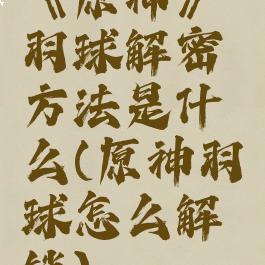 《原神》
羽球解密
方法是什
么(原神羽
球怎么解
锁)